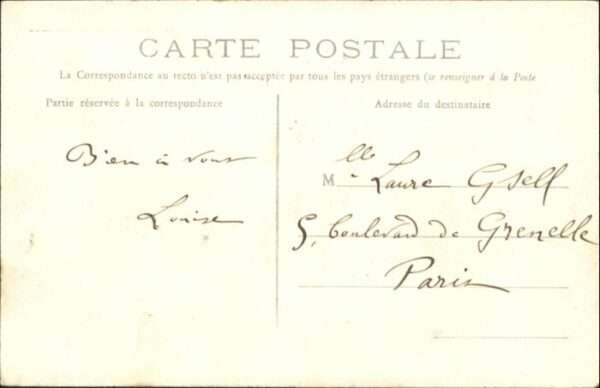 CARTE POSTALE
La Correspondance au recto n'est pas acceptée par tous les pays étrangers (se renseigner à la Poste
Partie réservée à la correspondance
Adresse du destinataire
Bien à vous
Louise
Mlle Laure Gsell
5, boulevard de Grenelle
Paris